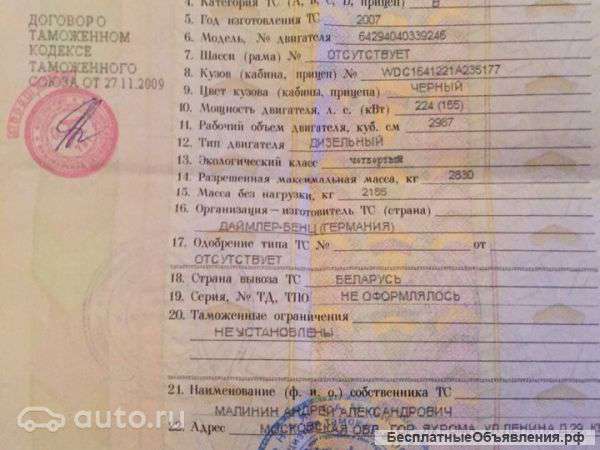 ДОГОВОР О
ТАМОЖЕННОМ
КОДЕКСЕ
ТАМОЖЕННОГО
СОЮЗА ОТ 27.11.2009
4. Категория ТС (А, В, С, D, прицеп) В
5. Год изготовления ТС 2007
6. Модель, № двигателя 64294040339245
7. Шасси (рама) № ОТСУТСТВУЕТ
8. Кузов (кабина, прицеп) № WDC1641221A235177
9. Цвет кузова (кабины, прицепа) ЧЕРНЫЙ
10. Мощность двигателя, л. с. (кВт) 224 (165)
11. Рабочий объем двигателя, куб. см 2987
12. Тип двигателя ДИЗЕЛЬНЫЙ
13. Экологический класс четвертый
14. Разрешенная максимальная масса, кг 2830
15. Масса без нагрузки, кг 2185
16. Организация—изготовитель ТС (страна)
ДАЙМЛЕР-БЕНЦ (ГЕРМАНИЯ)
17. Одобрение типа ТС № от
ОТСУТСТВУЕТ
18. Страна вывоза ТС БЕЛАРУСЬ
19. Серия, № ТД, ТПО НЕ ОФОРМЛЯЛОСЬ
20. Таможенные ограничения
НЕ УСТАНОВЛЕНЫ
21. Наименование (ф. и. о.) собственника ТС
МАЛИНИН АНДРЕЙ АЛЕКСАНДРОВИЧ
22. Адрес МОСКОВСКАЯ ОБЛ, ГОР. ЯХРОМА, УЛ ЛЕНИНА Д 29
auto.ru
БесплатныеОбъявления.рф